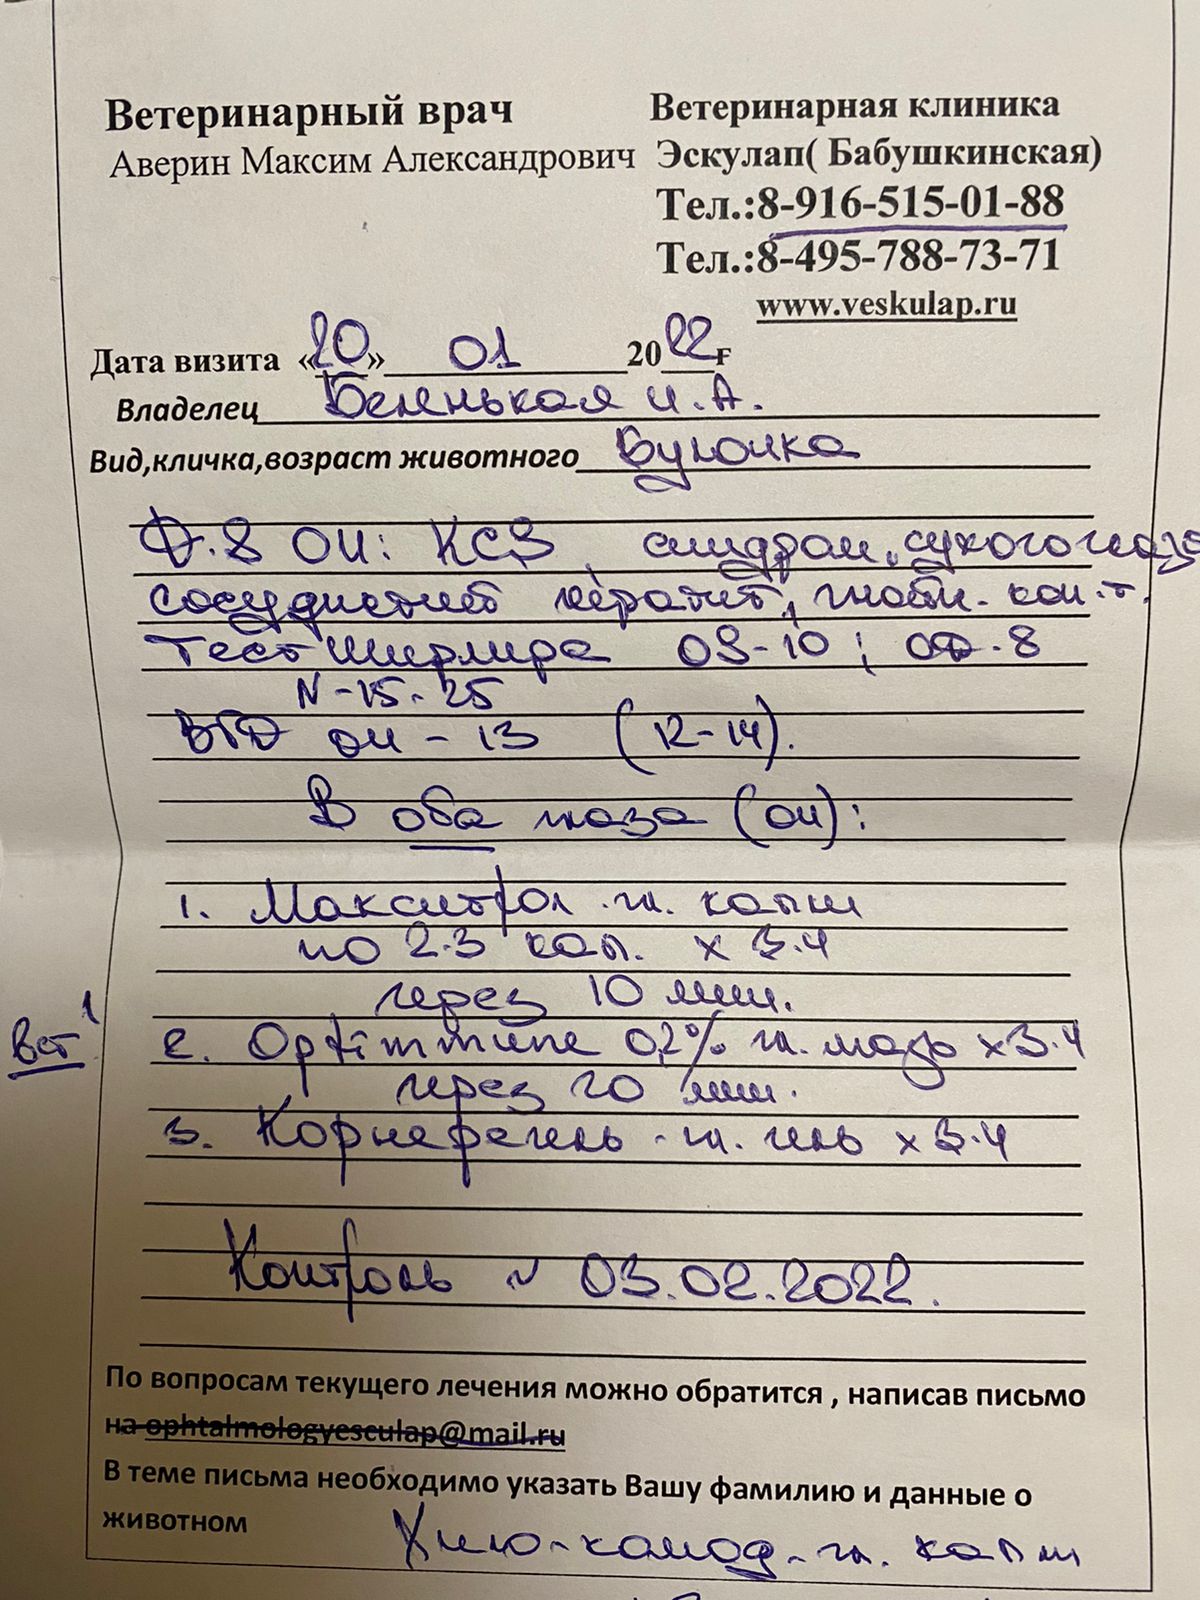 Ветеринарный врач
Аверин Максим Александрович
Ветеринарная клиника
Эскулап( Бабушкинская)
Тел.:8-916-515-01-88
Тел.:8-495-788-73-71
www.veskulap.ru
Дата визита «20» 01 2022г
Владелец Беленькая И.А.
Вид,кличка,возраст животного Булочка
D.S OU: КСЗ, синдром "сухого глаза
сосудистый кератит, гнойн. кон-т.
Тест Ширмера OS-10; OD-8
N-15-25
ВГД OU - 13 (12-14).
В оба глаза (OU):
1. Макситрол гл. капли
по 2-3 кап. х 3-4
через 10 мин.
Вет 2. Optimmune 0,2% гл. мазь х 3-4
через 20 мин.
3. Корнерегель - гл. гель х 3-4
Контроль ~ 03.02.2022.
По вопросам текущего лечения можно обратится , написав письмо
на ophtalmologyesculap@mail.ru
В теме письма необходимо указать Вашу фамилию и данные о
животном
Хило-комод - гл. капли